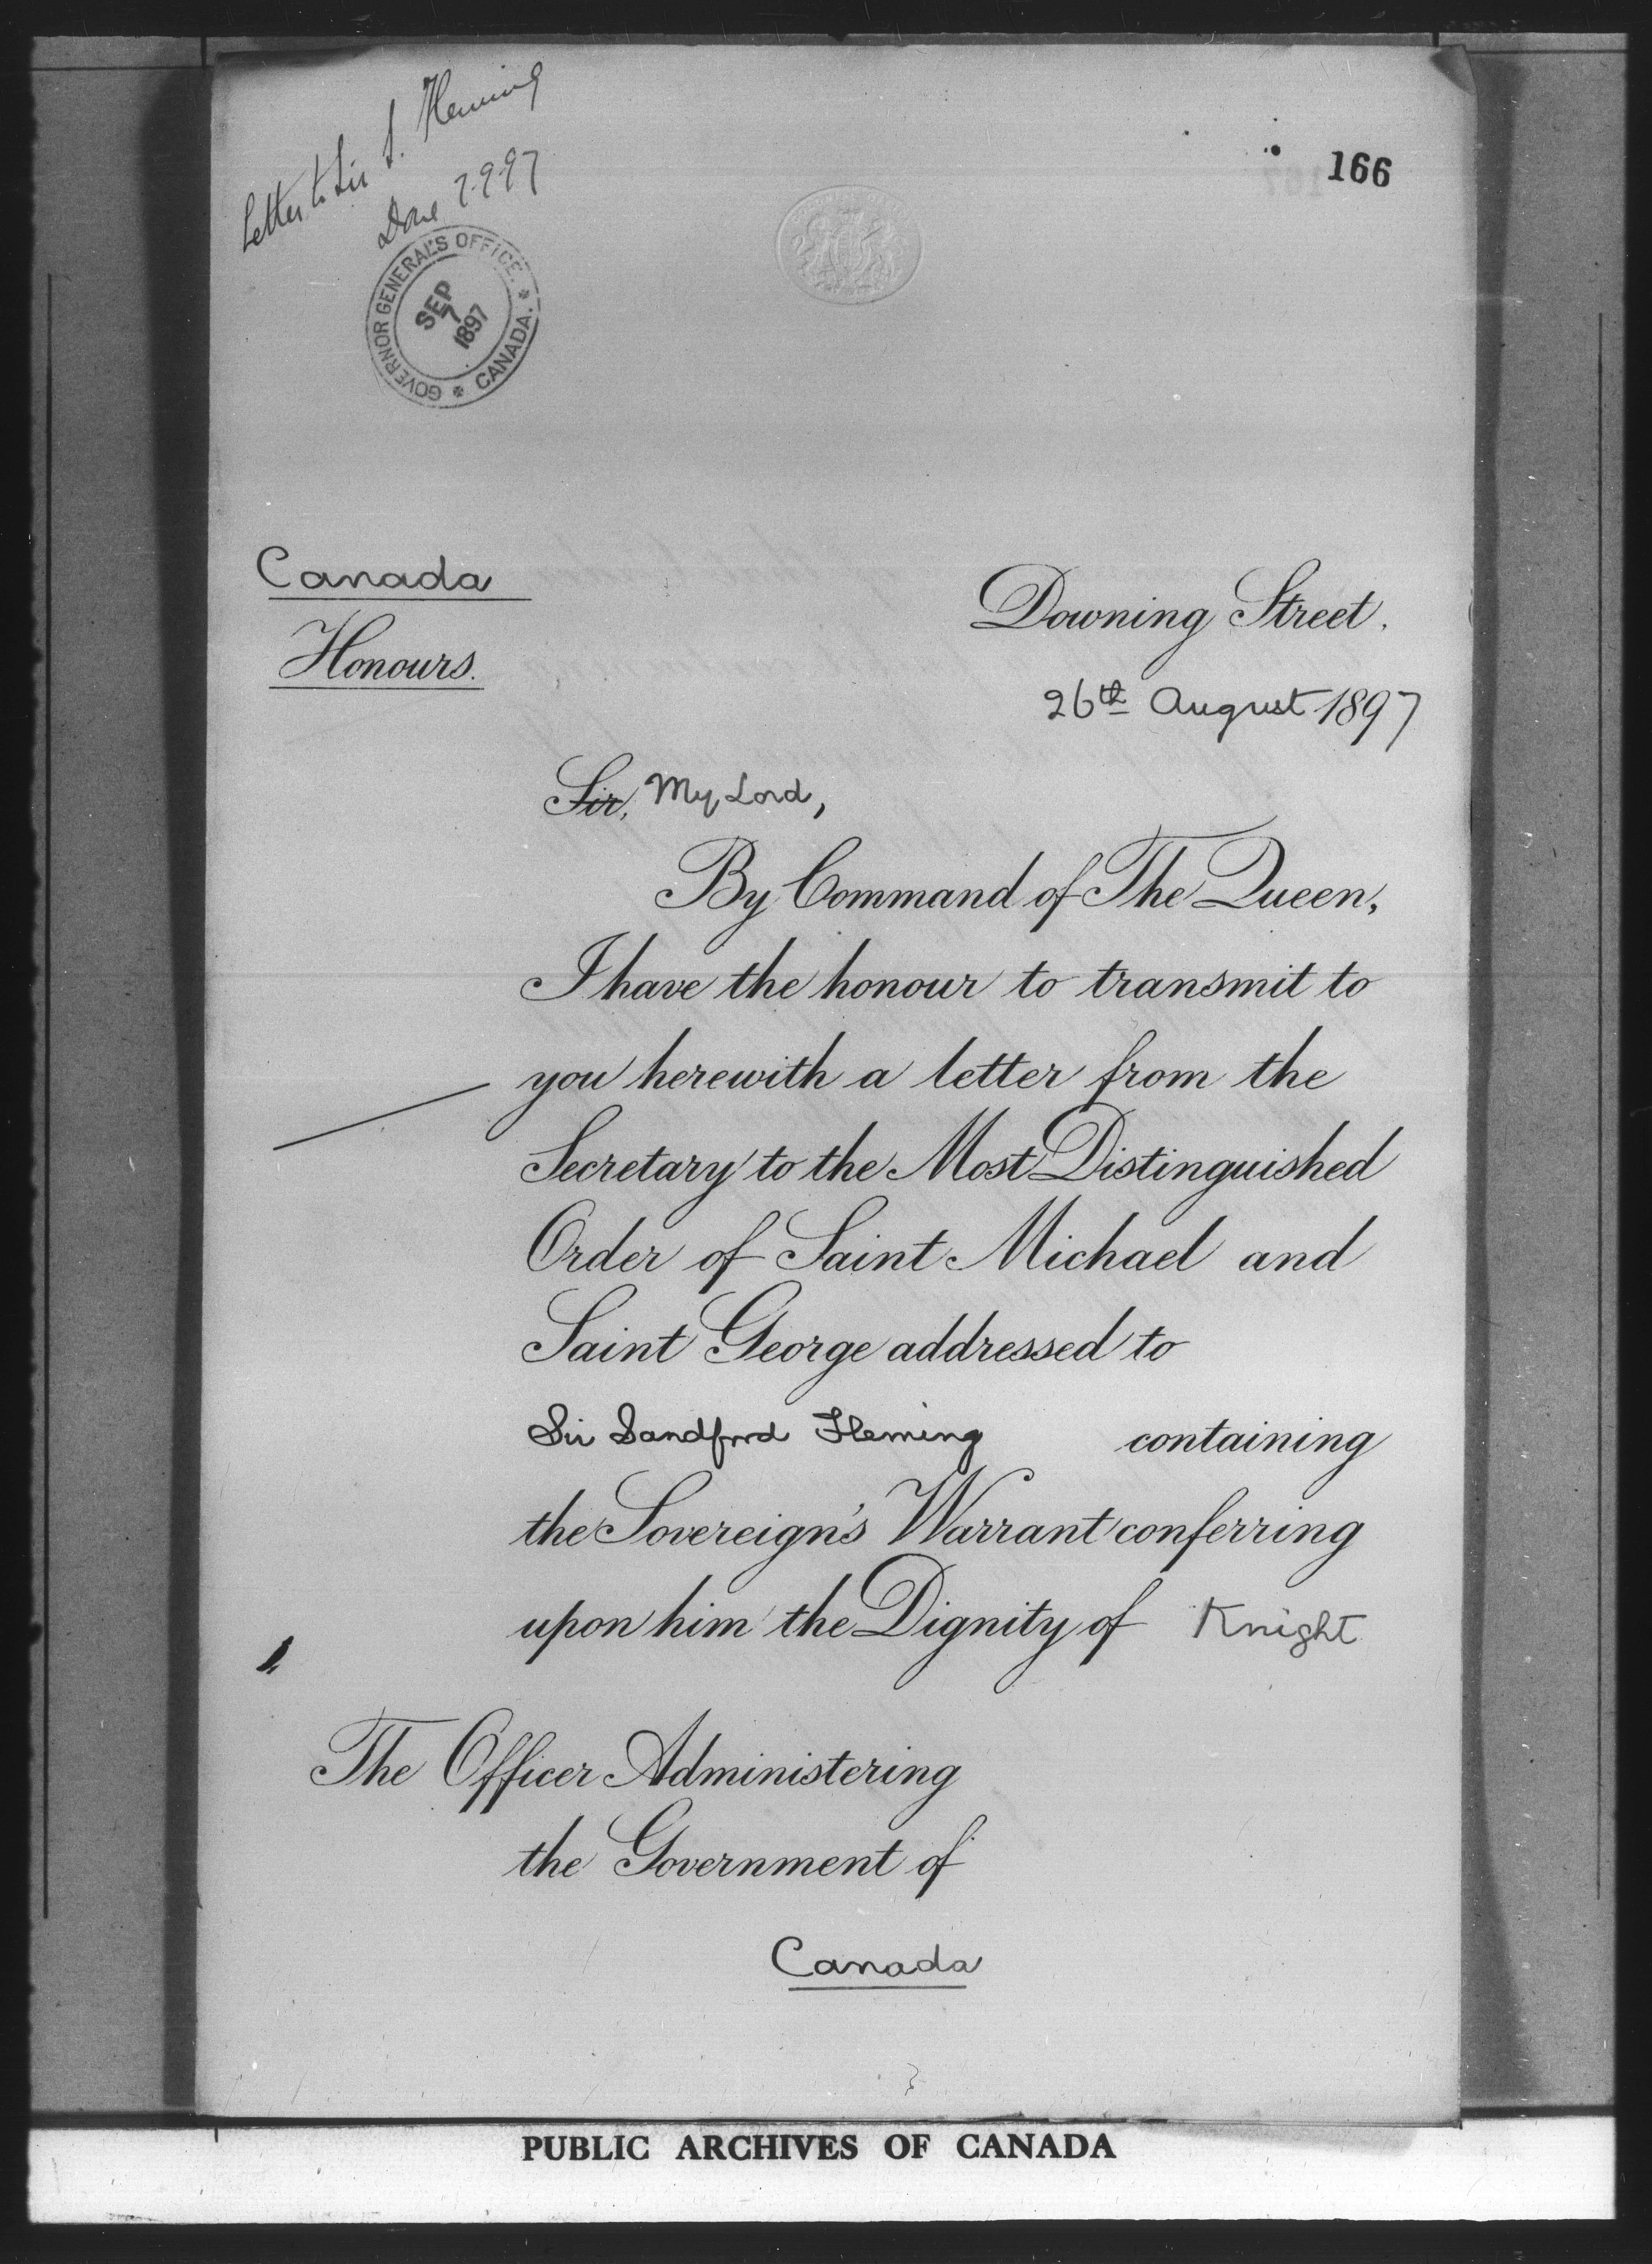 Letter to Sir S. Fleming
Done 7-9-97
GOVERNOR GENERAL'S OFFICE. * CANADA. *
SEP
7
1897
166
Canada
Honours.
Downing Street.
26th August 1897
Sir, My Lord,
By Command of The Queen,
I have the honour to transmit to
you herewith a letter from the
Secretary to the Most Distinguished
Order of Saint Michael and
Saint George addressed to
Sir Sandford Fleming containing
the Sovereign's Warrant conferring
upon him the Dignity of Knight
The Officer Administering
the Government of
Canada
PUBLIC ARCHIVES OF CANADA